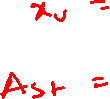 xu =
Ast =